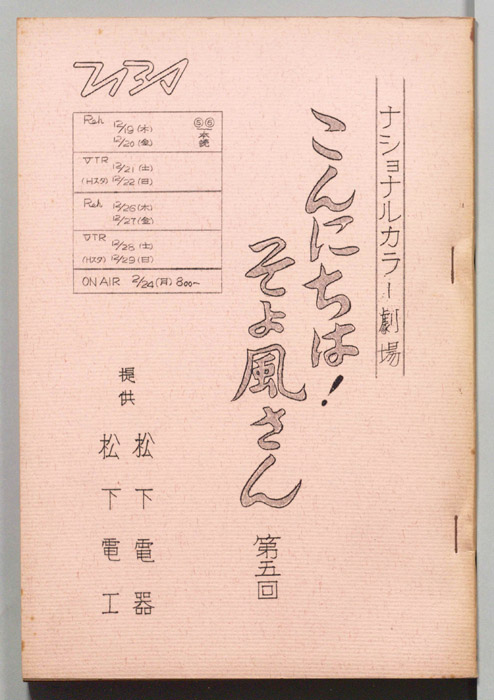 ナショナルカラー劇場
こんにちは!
そよ風さん
第五回
TBS
Reh 12/19(木)
12/20(金)
⑤⑥本読
VTR 12/21(土)
(Hスタ) 12/22(日)
Reh 12/26(木)
12/27(金)
VTR 12/28(土)
(Hスタ) 12/29(日)
ON AIR 2/24(月) 8:00~
提供
松下電器
松下電工